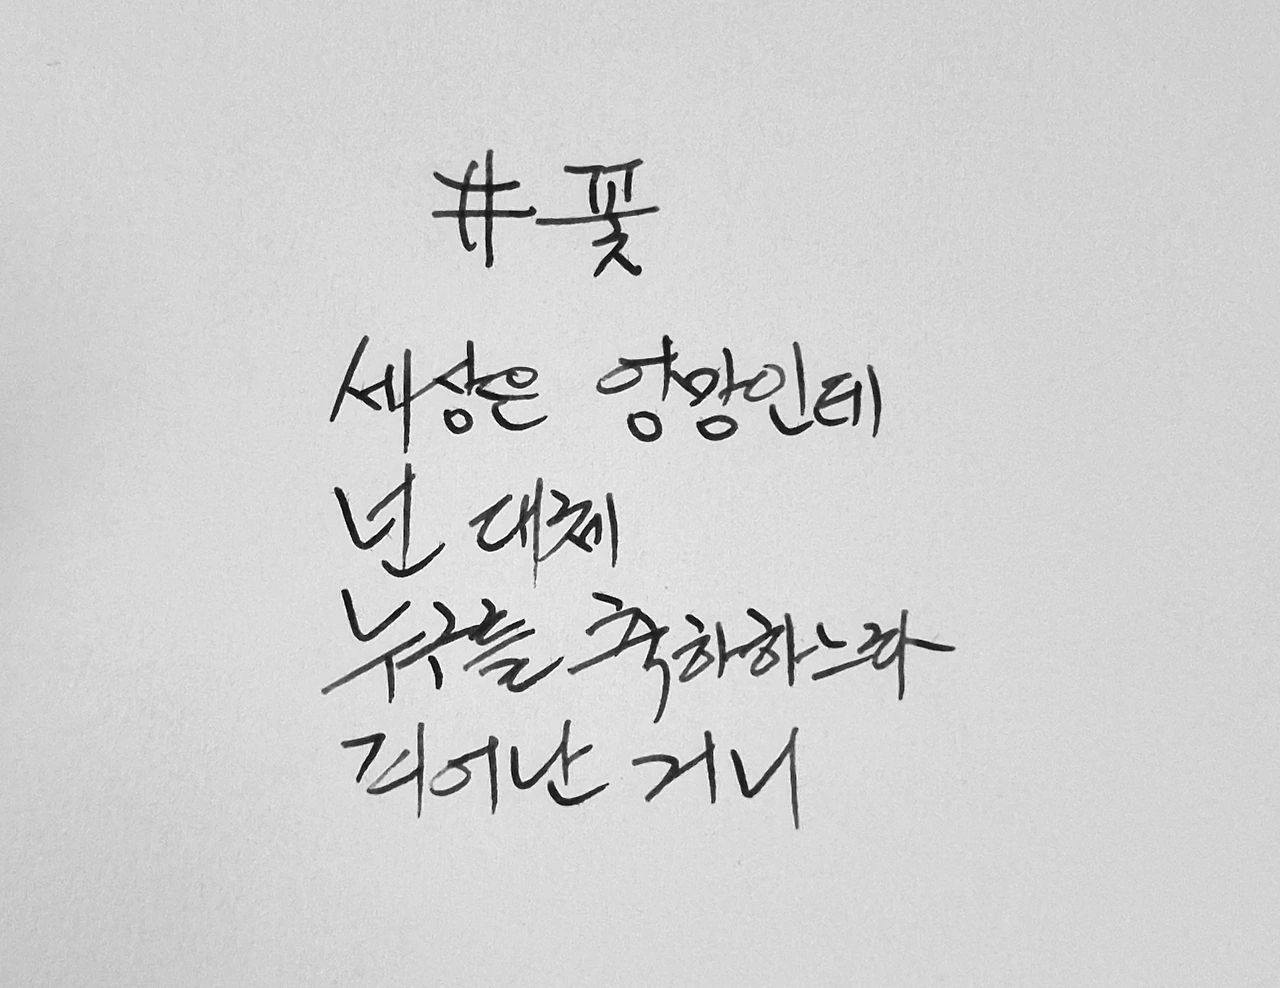 #꽃
세상은 엉망인데
넌 대체
누구를 축하하느라
피어난 거니